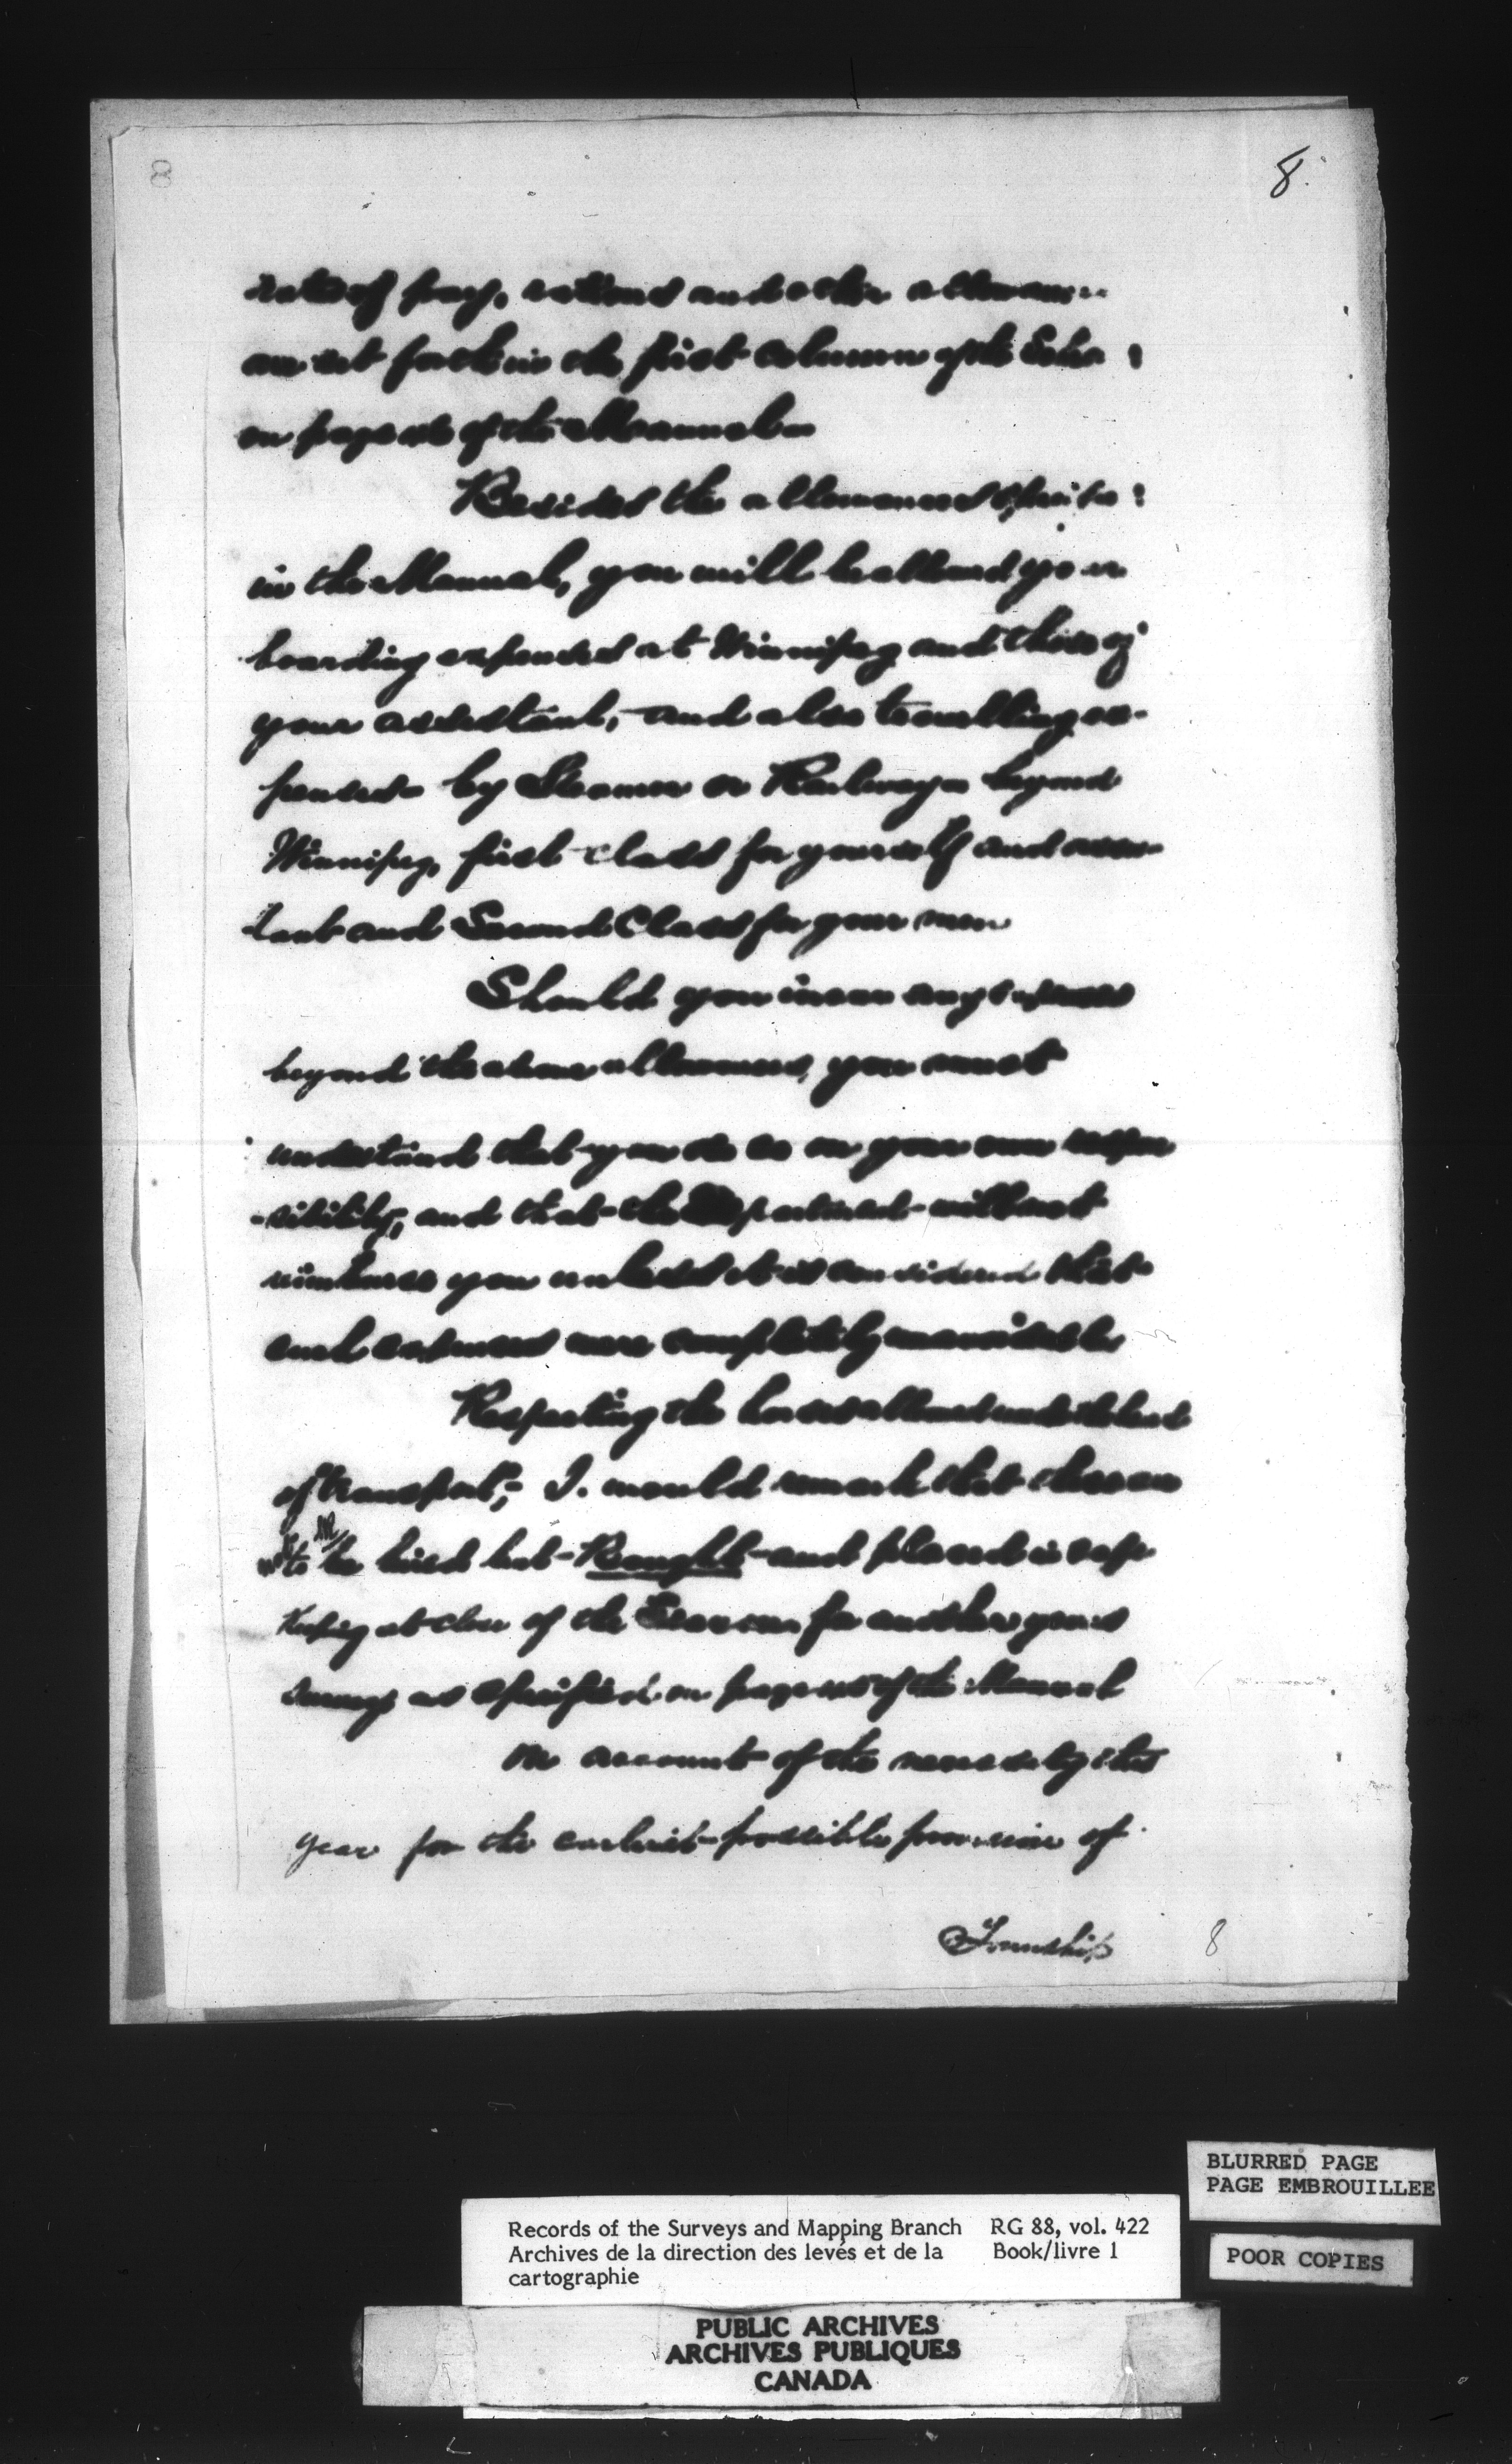 8.
rates of pay, rations and other allowan
are set forth in the first column of the
on page of the Manual
Besides the allowances
in the Manual, you will be allowed your
boarding expenses at Winnipeg and those of
your assistant, and also travelling ex-
penses by Steamer or Railways beyond
Winnipeg, first class for yourself and assis
tant and Second Class for your men
Should you incur any expenses
beyond the above allowances, you must
understand that you do so on your own respon
-sibility, and that the Department will not
reimburse you unless it is considered that
such expenses were completely unavoidable
Respecting the horses allowed under the head
of transport, I would remark that these are
not to be hired but Bought and placed in safe
keeping at close of the Season for another year's
surveys as specified on page of the Manual
On account of the necessity this
year for the earliest possible provision of
Township
8
BLURRED PAGE
PAGE EMBROUILLEE
Records of the Surveys and Mapping Branch RG 88, vol. 422
Archives de la direction des levés et de la Book/livre 1
cartographie
POOR COPIES
PUBLIC ARCHIVES
ARCHIVES PUBLIQUES
CANADA